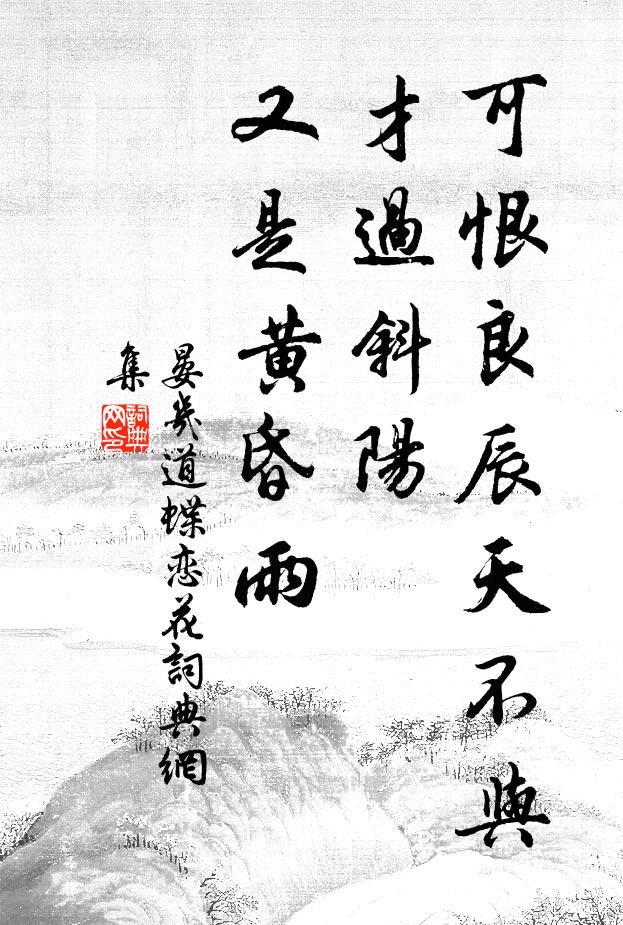 可恨良辰天不與
才過斜陽
又是黃昏雨
晏幾道蝶恋花詞典網
集
詞典
网印